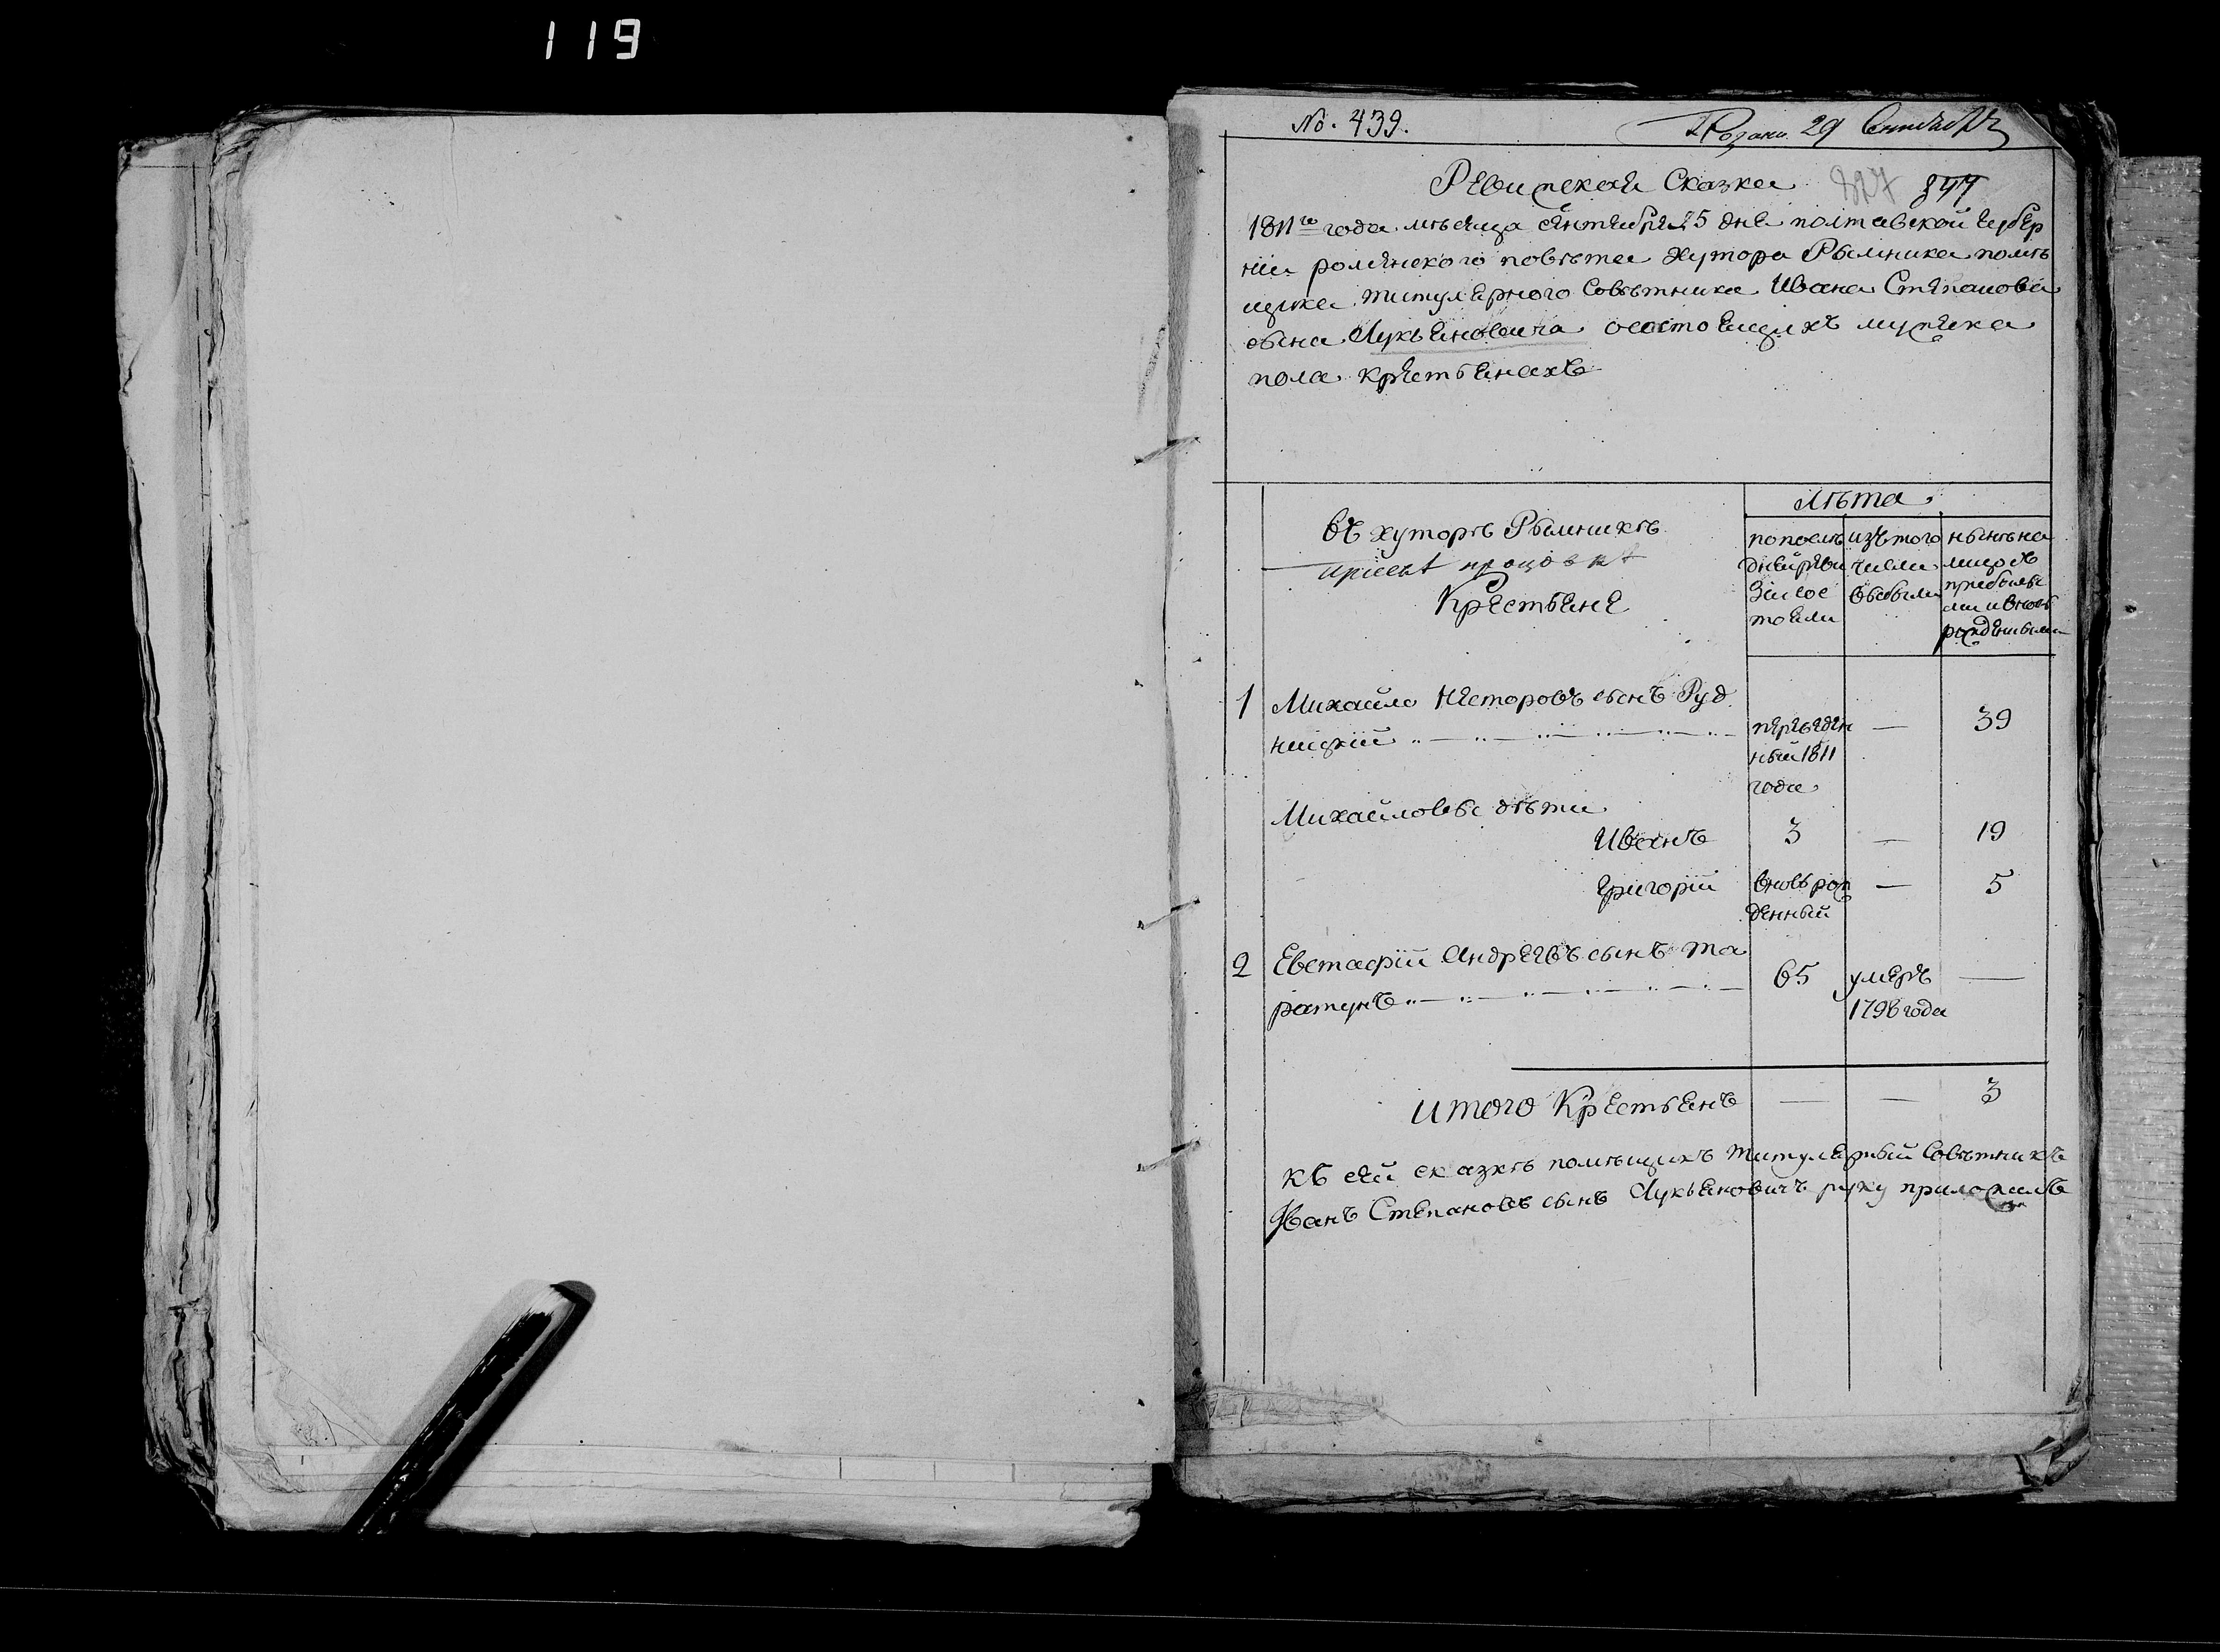 119
No. 439.
29 Сентября
Ревизская Сказка 844
1811го года месяца сентября 25 дня полтавской губер
нии роменского повѣта Хутора Рымника помѣ
щика титулярного Совѣтника Ивана Степанова
сына Лукьяновича состоящихъ мужеска
пола крестьянахъ
Лѣта
въ хуторѣ Рымникѣ
Крестьяне
попослѣ
дней реви
зіи сос
тояли
изъ того
числа
выбыли
ныне на
лицо съ
прибылы
ми и вновь
рожденными
1 Михайло Несторовъ сынъ Руд
ницкій переведен — 39
ный 1811
года
Михайловы дѣти
Иванъ 3 — 19
Григорій вновь рож — 5
денный
2 Евстафій Андреевъ сынъ та
ратунъ 65 умеръ —
1796 года
итого Крестьянъ — — 3
къ сей сказкѣ помѣщикъ титулярный Совѣтникъ
Иванъ Степановъ сынъ Лукьяновичъ руку приложилъ